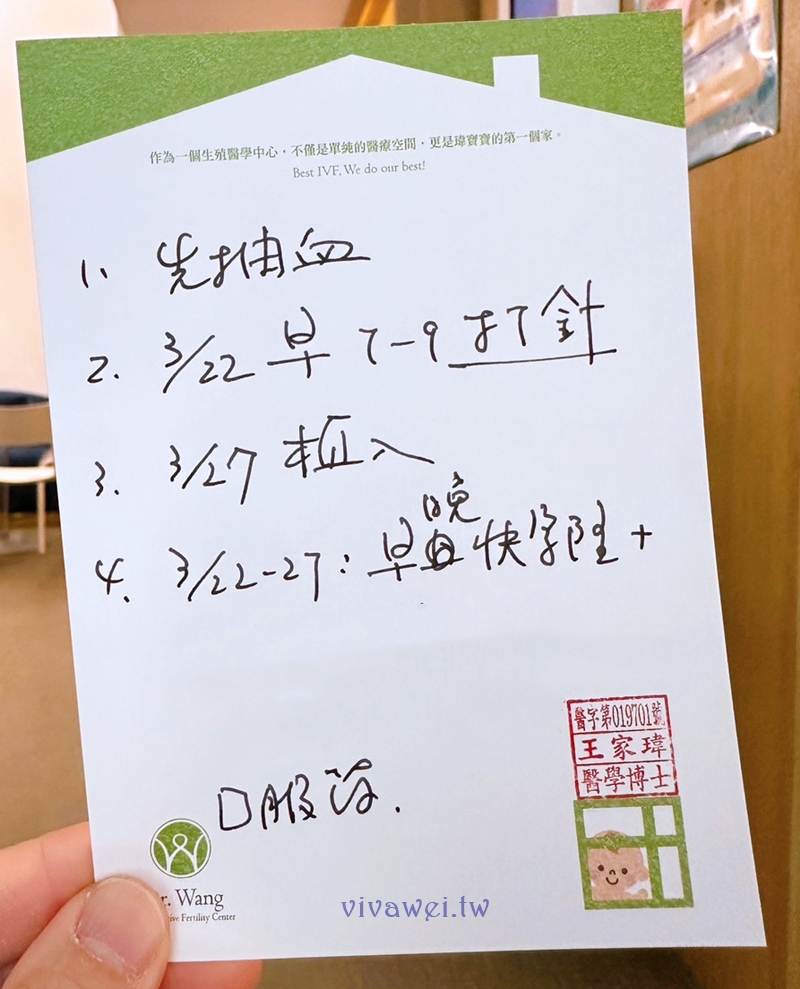 作為一個生殖醫學中心，不僅是單純的醫療空間，更是瑋寶寶的第一個家。
Best IVF, We do our best!
1. 先抽血
2. 3/22 早 7-9 打針
3. 3/27 植入
4. 3/22-27: 早晚 快孕隆 +
口服
醫字第019701號
王家瑋
醫學博士
r. Wang
tive Fertility Center
vivawei.tw